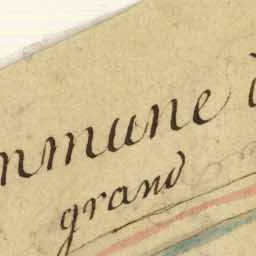 mmune
grand